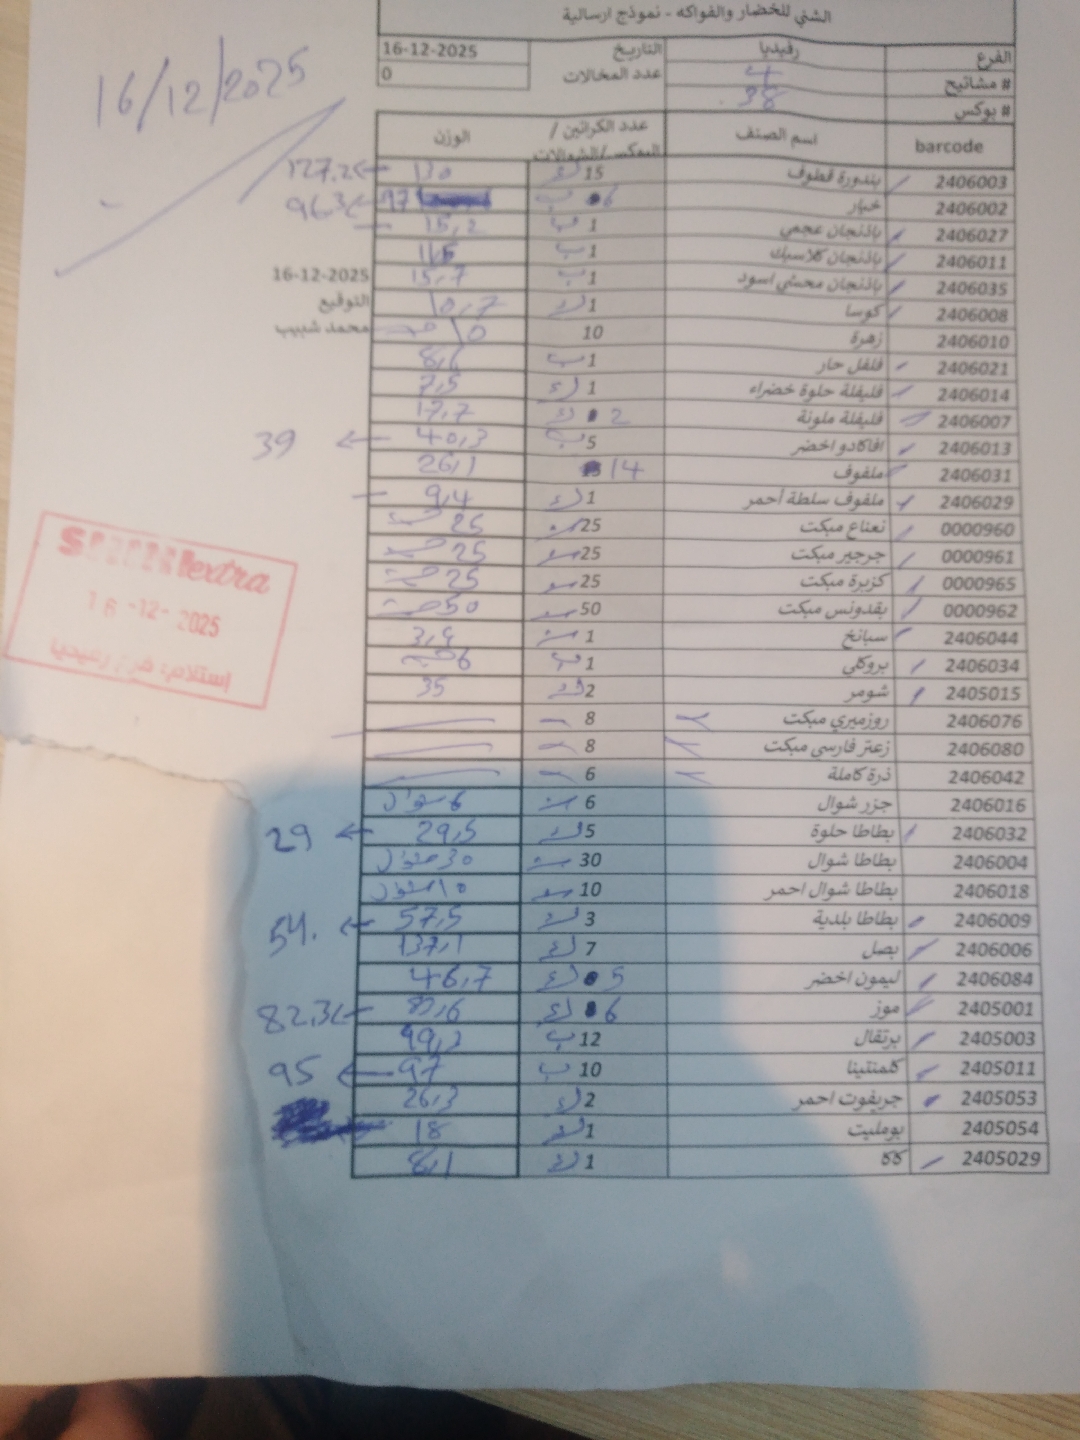 الشني للخضار والفواكه - نموذج ارسالية
الفرع رفيديا التاريخ 16-12-2025
# مشاتيح 4 عدد المخالات 0
# بوكس 38
16/12/2025
barcode اسم الصنف عدد الكراتين / البوكس/الشوالات الوزن
2406003 بندورة قطوف 15 130 127.2
2406002 خيار 6 ب 97 96.3
2406027 باذنجان عجمي 1 ب 15,2
2406011 باذنجان كلاسيك 1 ب
2406035 باذنجان محشي اسود 1 ب 15,7 16-12-2025
2406008 كوسا 1 10,7 التوقيع
2406010 زهرة 10 10 محمد شبيب
2406021 فلفل حار 1 ب 8,6
2406014 فليفلة حلوة خضراء 1 7,5
2406007 فليفلة ملونة 2
2406013 افاكادو اخضر 5 ب 40,3 39
2406031 ملفوف 14 26,1
2406029 ملفوف سلطة أحمر 1 9,4
0000960 نعناع مبكت 25 25
0000961 جرجير مبكت 25 25
0000965 كزبرة مبكت 25 25
0000962 بقدونس مبكت 50 50
2406044 سبانخ 1
2406034 بروكلي 1 ب 6
2405015 شومر 2 35
2406076 روزميري مبكت 8
2406080 زعتر فارسي مبكت 8
2406042 ذرة كاملة 6
2406016 جزر شوال 6 6 شوال
2406032 بطاطا حلوة 5 29,5 29
2406004 بطاطا شوال 30 30 شوال
2406018 بطاطا شوال احمر 10 10 شوال
2406009 بطاطا بلدية 3 57,5 54.
2406006 بصل 7 137,1
2406084 ليمون اخضر 5 46,7
2405001 موز 6 82.3
2405003 برتقال 12 ب
2405011 كلمنتينا 10 ب 97 95
2405053 جريفوت احمر 2 26,3
2405054 بومليت 1 18
2405029 كاكا 1 8,1
extra
16-12-2025
استلام